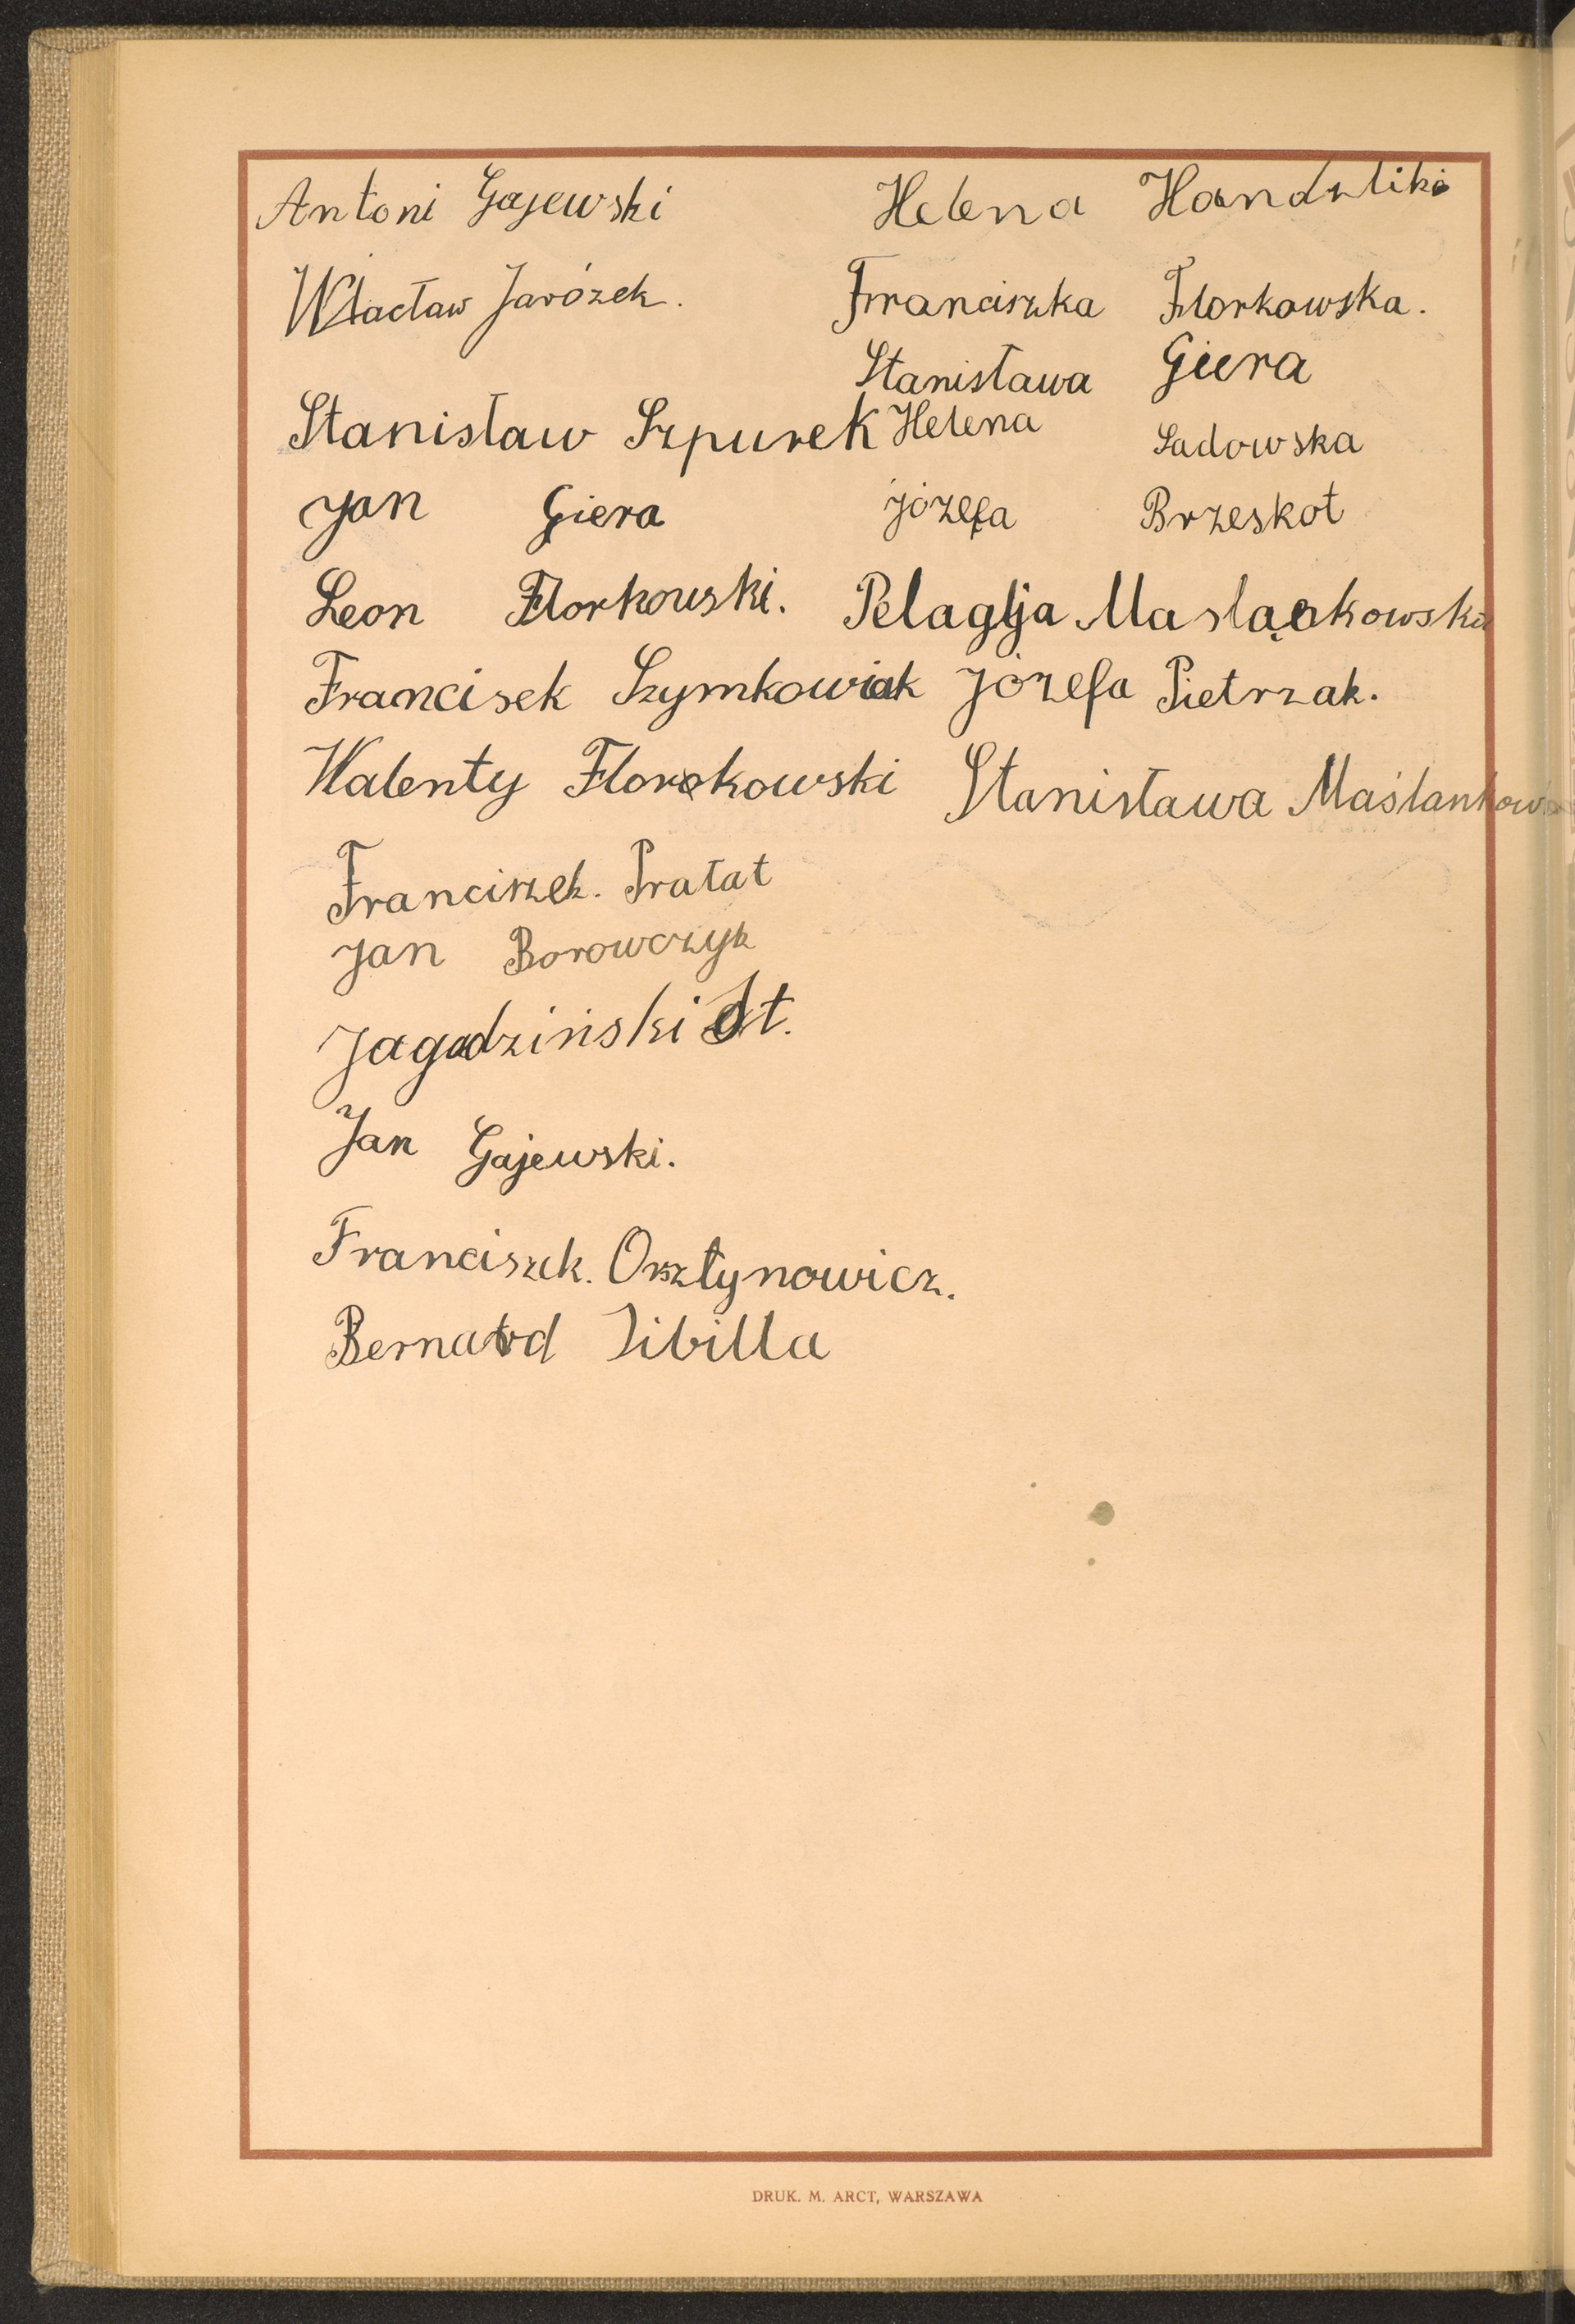 Antoni Gajewski
Włacław Jarózek.
Stanisław Szpurek
Jan Giera
Leon Florkowski.
Francisek Szymkowiak
Walenty Florokowski
Franciszek. Prałat
Jan Borowczyk
Jagodziński St.
Jan Gajewski.
Franciszek. Orsztynowicz.
Bernard Sibilla
Helena
Franciszka Florkowska.
Stanisława Giera
Helena Sadowska
Józefa Brzeskot
Pelagja Masląckowska
Józefa Pietrzak.
Stanisława Maślankows
DRUK. M. ARCT, WARSZAWA